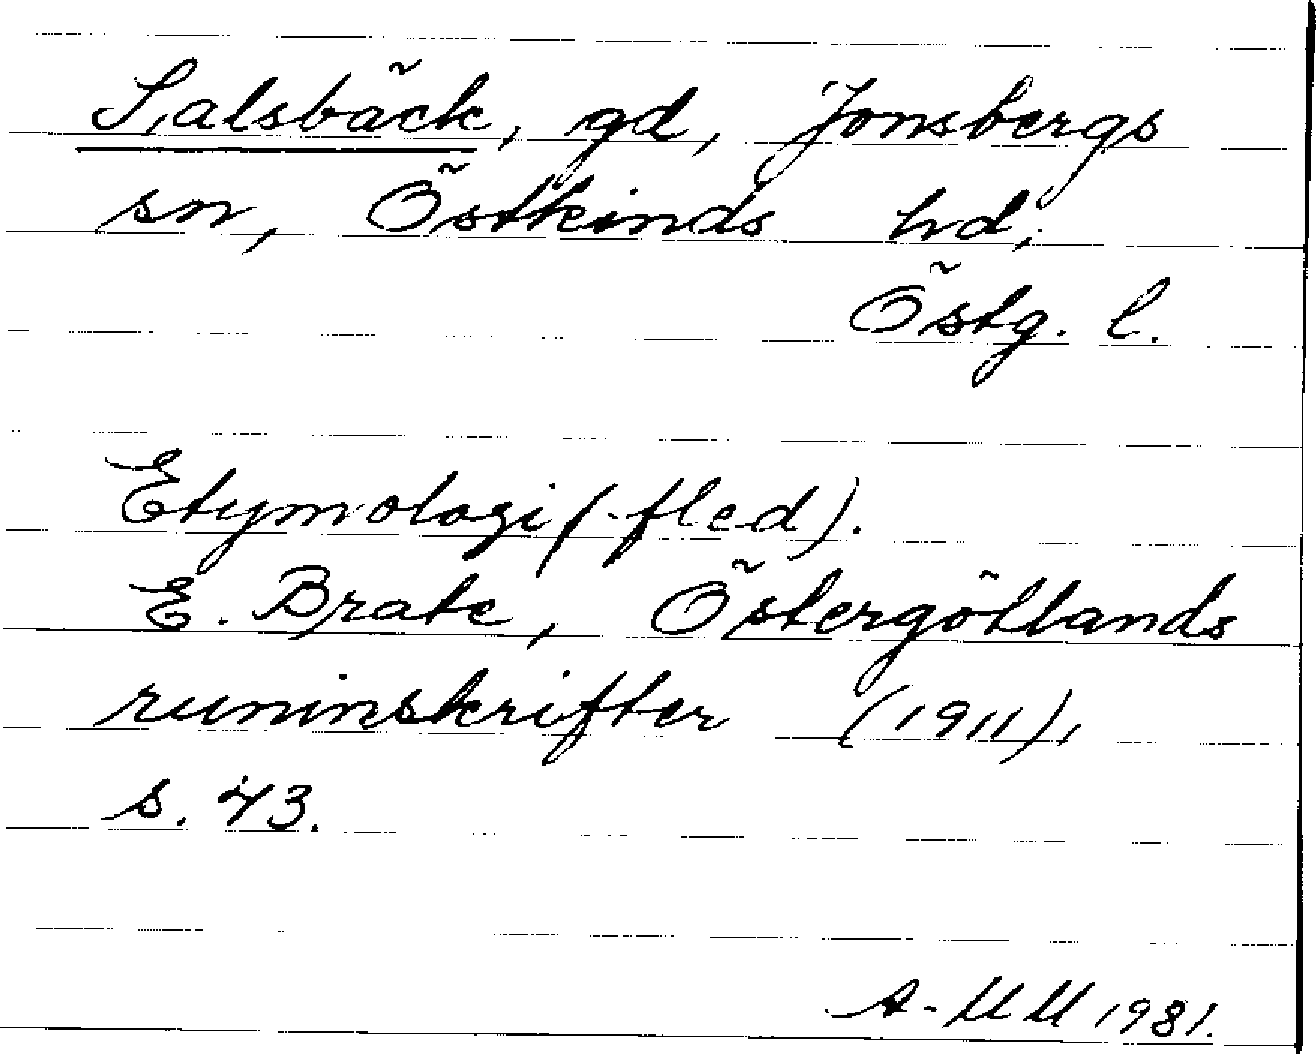 Salsbäck, gd, Jonsbergs
sn, Östkinds hd,
Östg. l.
Etymologi (-fled).
E. Brate, Östergötlands
runinskrifter (1911),
s. 43.
A-MM 1981.